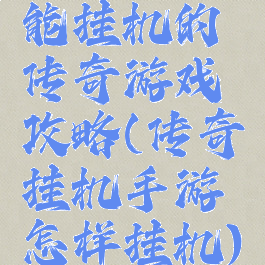 能挂机的
传奇游戏
攻略(传奇
挂机手游
怎样挂机)